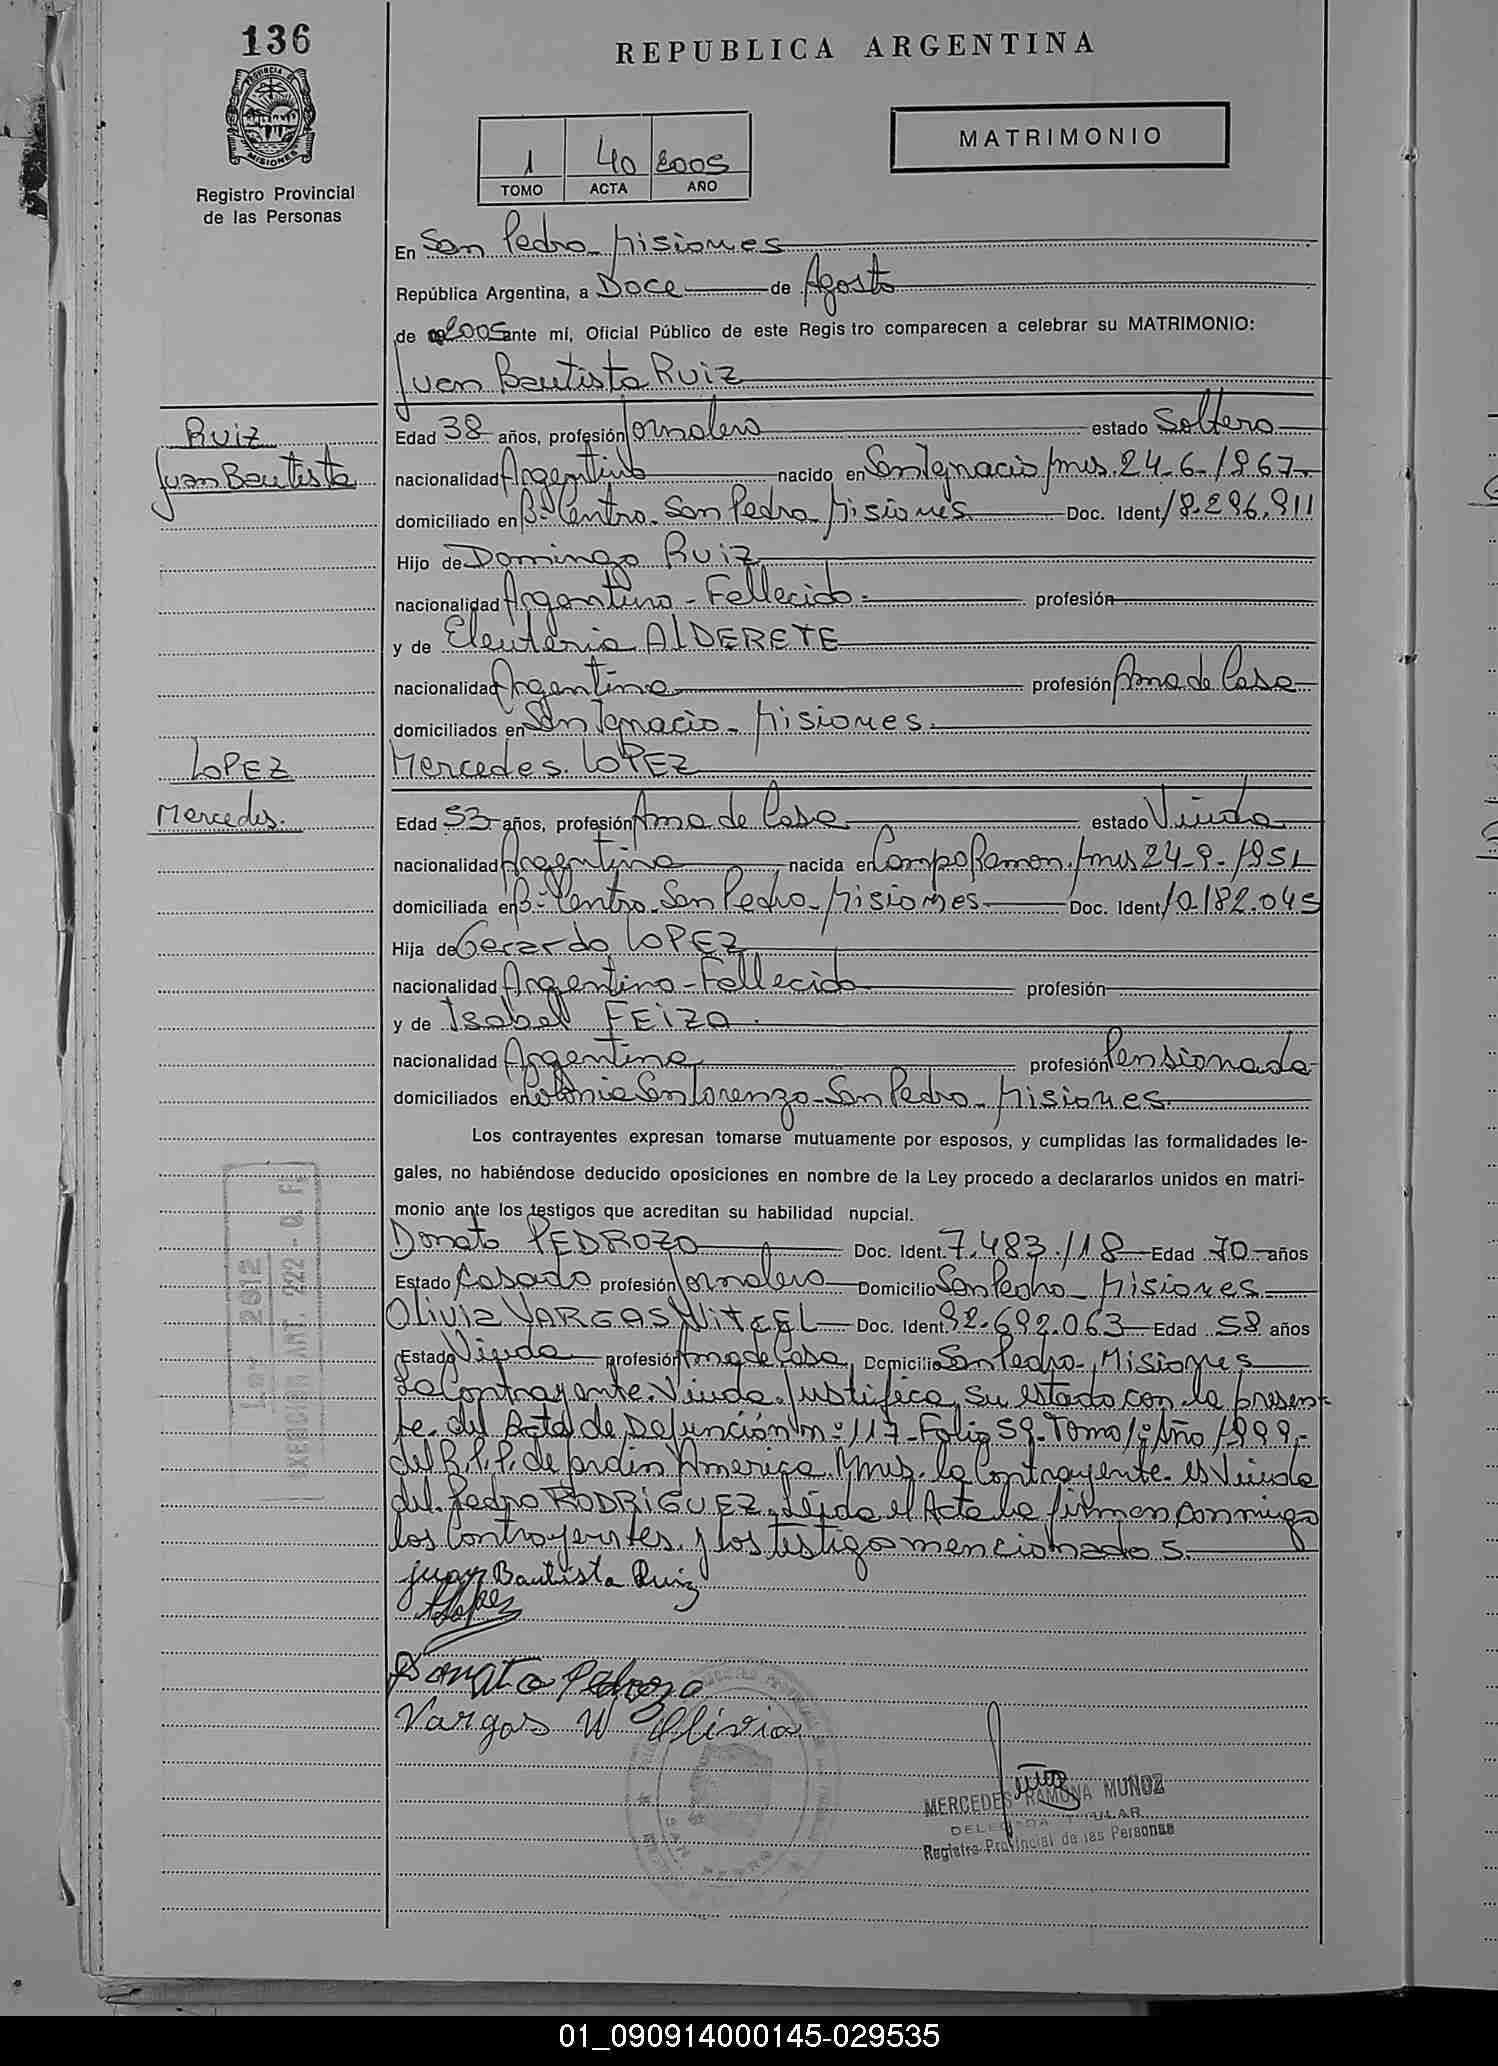 136
REPUBLICA ARGENTINA
PROVINCIA DE
MISIONES
Registro Provincial
de las Personas
1 40 2005
TOMO ACTA AÑO
MATRIMONIO
En San Pedro - Misiones
República Argentina, a Doce de Agosto
de 2005 ante mí, Oficial Público de este Regis tro comparecen a celebrar su MATRIMONIO:
Juan Bautista Ruiz
Ruiz
Juan Bautista
Edad 38 años, profesión Jornalero estado Soltero
nacionalidad Argentino nacido en San Ignacio, Mnes. 24-6-1967
domiciliado en Bº Centro - San Pedro - Misiones Doc. Ident. 18.296.911
Hijo de Domingo Ruiz
nacionalidad Argentino - Fallecido. profesión
y de Eleuteria ALDERETE
nacionalidad Argentina profesión Ama de Casa
domiciliados en San Ignacio - Misiones.
LOPEZ
Mercedes.
Mercedes. LOPEZ
Edad 53 años, profesión Ama de Casa estado Viuda
nacionalidad Argentina nacida en Campo Ramon, Mnes 24-9-1951
domiciliada en Bº Centro - San Pedro - Misiones Doc. Ident. 10.182.045
Hija de Gerardo LOPEZ
nacionalidad Argentino - Fallecido profesión
y de Isabel FEIZO.
nacionalidad Argentina profesión Pensionada
domiciliados en Colonia San Lorenzo - San Pedro - Misiones
Los contrayentes expresan tomarse mutuamente por esposos, y cumplidas las formalidades le-
gales, no habiéndose deducido oposiciones en nombre de la Ley procedo a declararlos unidos en matri-
monio ante los testigos que acreditan su habilidad nupcial.
Donato PEDROZO Doc. Ident. 7.483.118 Edad 70 años
Estado Casado profesión Jornalero Domicilio San Pedro - Misiones
Olivia VARGAS Doc. Ident. 92.692.063 Edad 58 años
Estado Viuda profesión Ama de Casa, Domicilio San Pedro - Misiones
La Contrayente Viuda Justifica su estado con la presen-
te del Acta de Defunción nº 117 - Folio 59 - Tomo 1º Año 1999,-
del R.P.P. de Jardin America, Mnes. la Contrayente es Viuda
del Pedro RODRIGUEZ, Leida el Acta la firman conmigo
los Contrayentes y los testigos mencionados.
juan Bautista Ruiz
Lopez
Donato Pedrozo
Vargas W Olivia
MERCEDES RAMONA MUÑOZ
DELEGADA TITULAR
Registro Provincial de las Personas
2012
EXENCION ART. 222 - Q. F.
01_090914000145-029535